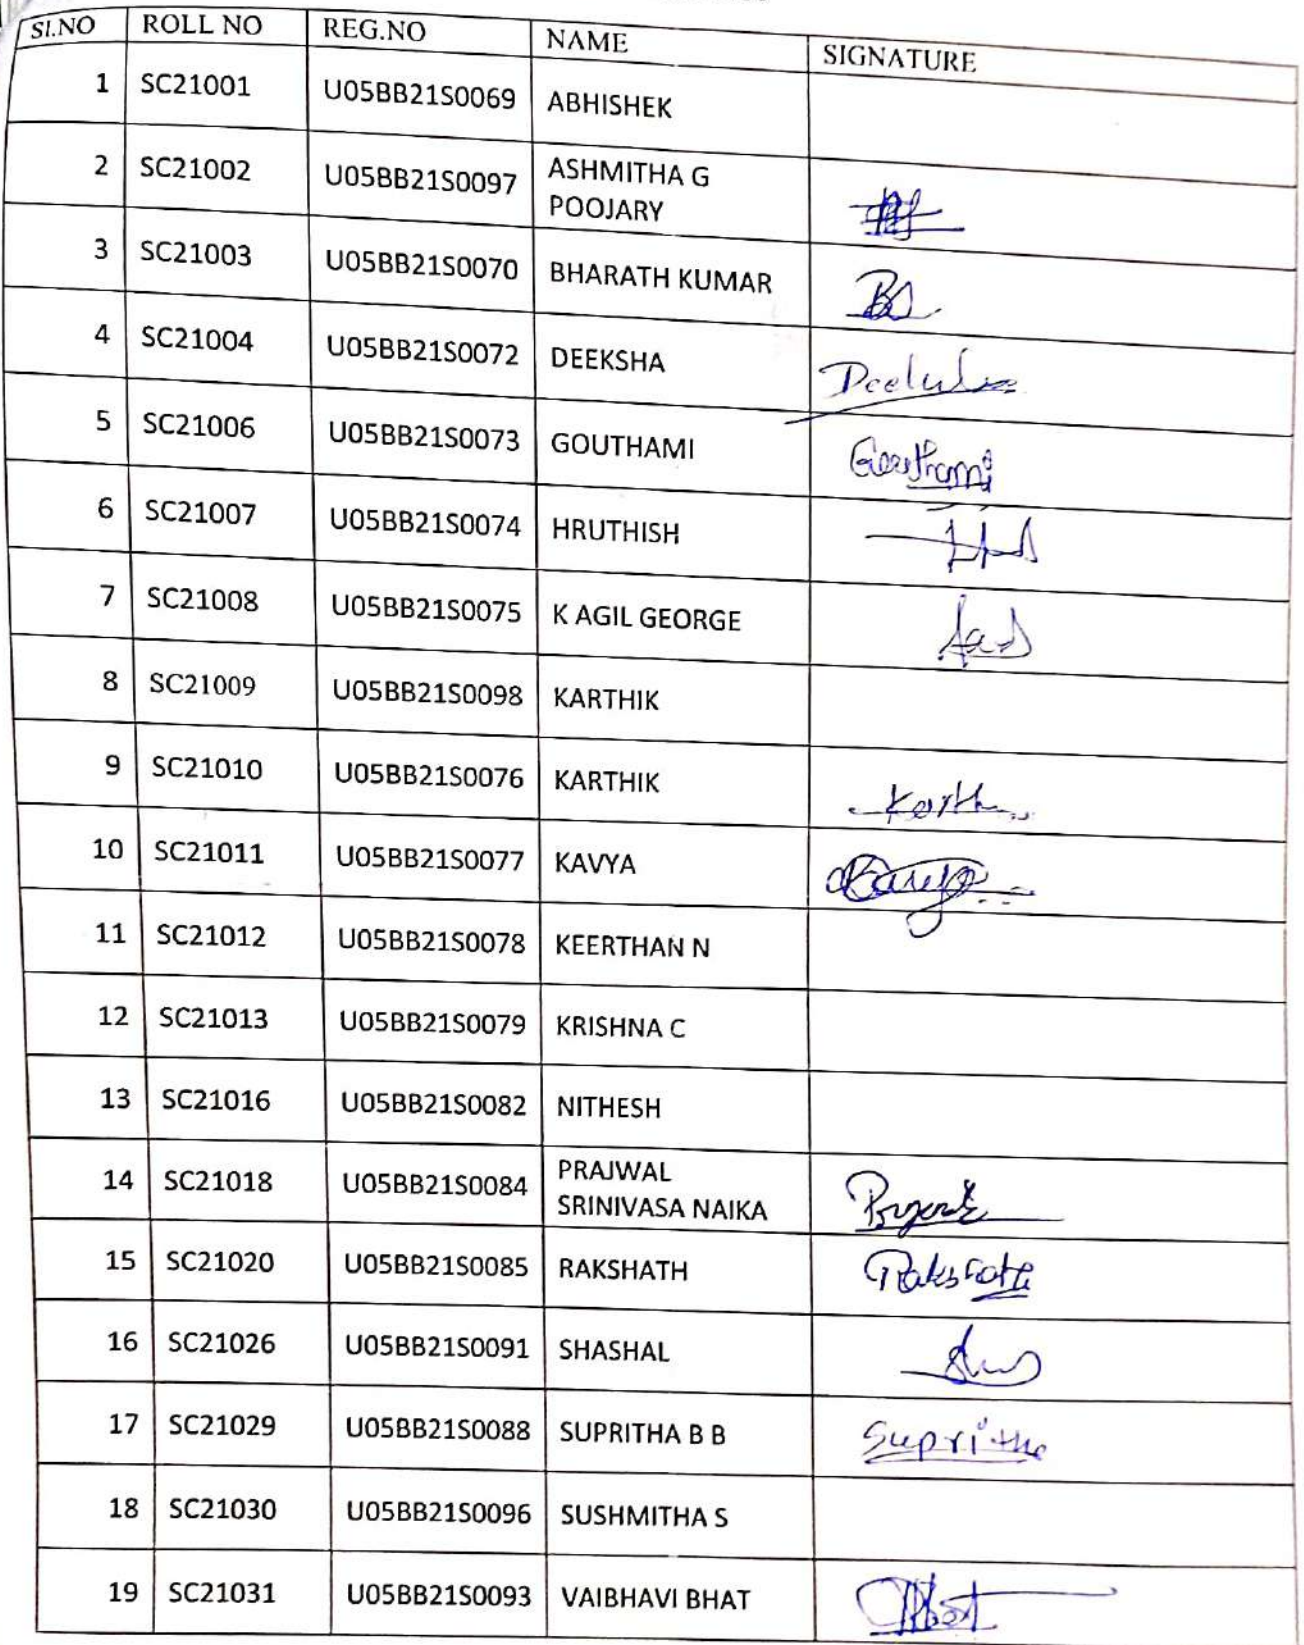 SI.NO ROLL NO REG.NO NAME SIGNATURE
1 SC21001 U05BB21S0069 ABHISHEK
2 SC21002 U05BB21S0097 ASHMITHA G
POOJARY
3 SC21003 U05BB21S0070 BHARATH KUMAR
4 SC21004 U05BB21S0072 DEEKSHA
5 SC21006 U05BB21S0073 GOUTHAMI Gouthami
6 SC21007 U05BB21S0074 HRUTHISH
7 SC21008 U05BB21S0075 K AGIL GEORGE
8 SC21009 U05BB21S0098 KARTHIK
9 SC21010 U05BB21S0076 KARTHIK
10 SC21011 U05BB21S0077 KAVYA
11 SC21012 U05BB21S0078 KEERTHAN N
12 SC21013 U05BB21S0079 KRISHNA C
13 SC21016 U05BB21S0082 NITHESH
14 SC21018 U05BB21S0084 PRAJWAL
SRINIVASA NAIKA
15 SC21020 U05BB21S0085 RAKSHATH
16 SC21026 U05BB21S0091 SHASHAL
17 SC21029 U05BB21S0088 SUPRITHA B B Supritha
18 SC21030 U05BB21S0096 SUSHMITHA S
19 SC21031 U05BB21S0093 VAIBHAVI BHAT